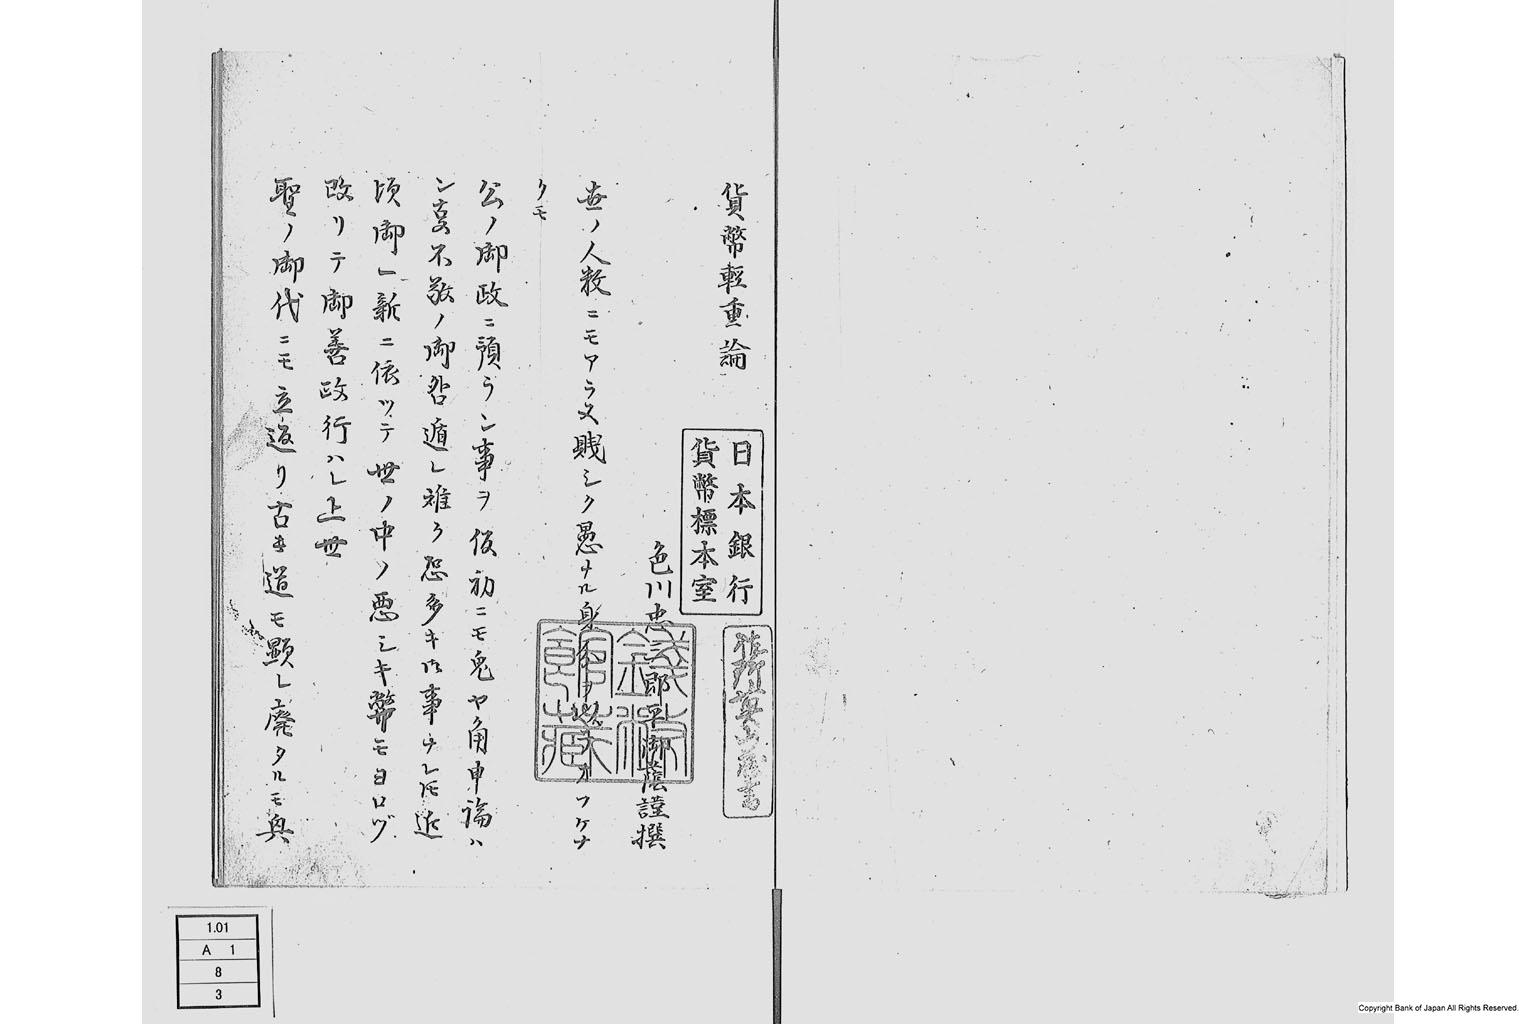 貨幣輕重論
日本銀行
貨幣標本室
色川 郎平御蔭謹撰
世ノ人数ニモアラヌ賤シク愚ナル身 オフケナ
クモ
公ノ御政ニ預ラン事ヲ仮初ニモ兎ヤ角申論ハ
ン 不敬ノ御咎遁レ難ク恐多キ御事ナレドモ近
頃御一新ニ依ツテ世ノ中ノ悪シキ弊モヨロヅ
改リテ御善政行ハレ上世
聖ノ御代ニモ立返リ古キ道モ顕レ廃タルモ興
錢幣館藏
1.01
A 1
8
3
Copyright Bank of Japan All Rights Reserved.